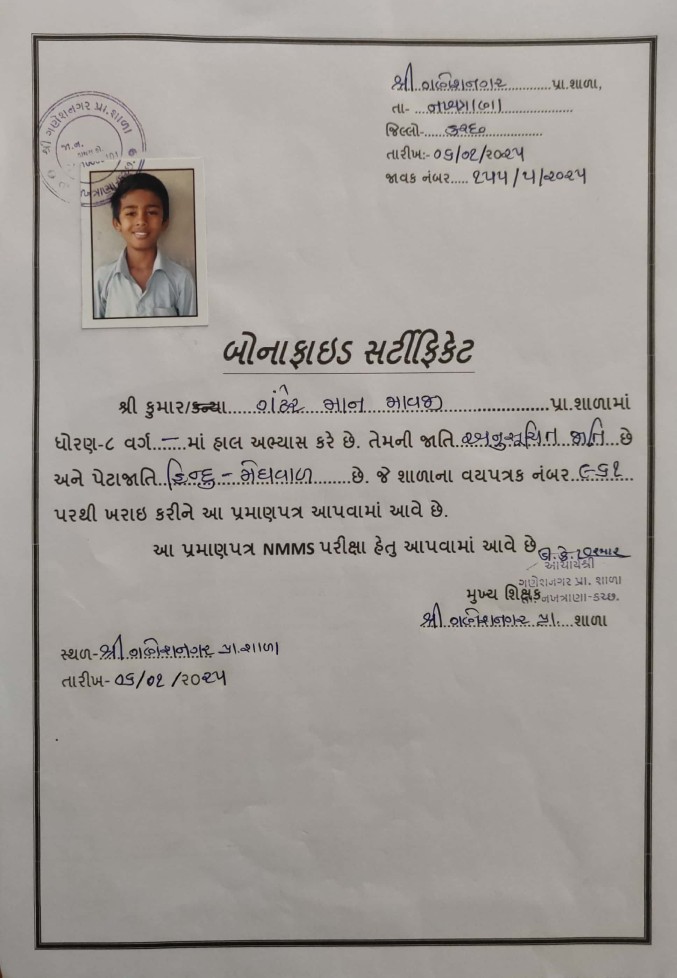 શ્રી ગણેશનગર પ્રા.શાળા,
તા- નખત્રાણા
જિલ્લો- કચ્છ
તારીખ:- ૦૬/૦૧/૨૦૨૫
જાવક નંબર..... ૨૫૫/૫/૨૦૨૫
શ્રી ગણેશનગર પ્રા. શાળા
બોનાફાઇડ સર્ટીફિકેટ
શ્રી કુમાર/કન્યા માન માવજી પ્રા.શાળામાં
ધોરણ-૮ વર્ગ.-.માં હાલ અભ્યાસ કરે છે. તેમની જાતિ અનુસૂચિત જાતિ છે
અને પેટાજાતિ હિન્દુ - મેઘવાળ છે. જે શાળાના વયપત્રક નંબર ૯૬૧
પરથી ખરાઇ કરીને આ પ્રમાણપત્ર આપવામાં આવે છે.
આ પ્રમાણપત્ર NMMS પરીક્ષા હેતુ આપવામાં આવે છે
આચાર્યશ્રી
ગણેશનગર પ્રા. શાળા
મુખ્ય શિક્ષક
નખત્રાણા-કચ્છ.
શ્રી ગણેશનગર પ્રા. શાળા
સ્થળ- શ્રી ગણેશનગર પ્રા.શાળા
તારીખ- ૦૬/૦૧/૨૦૨૫